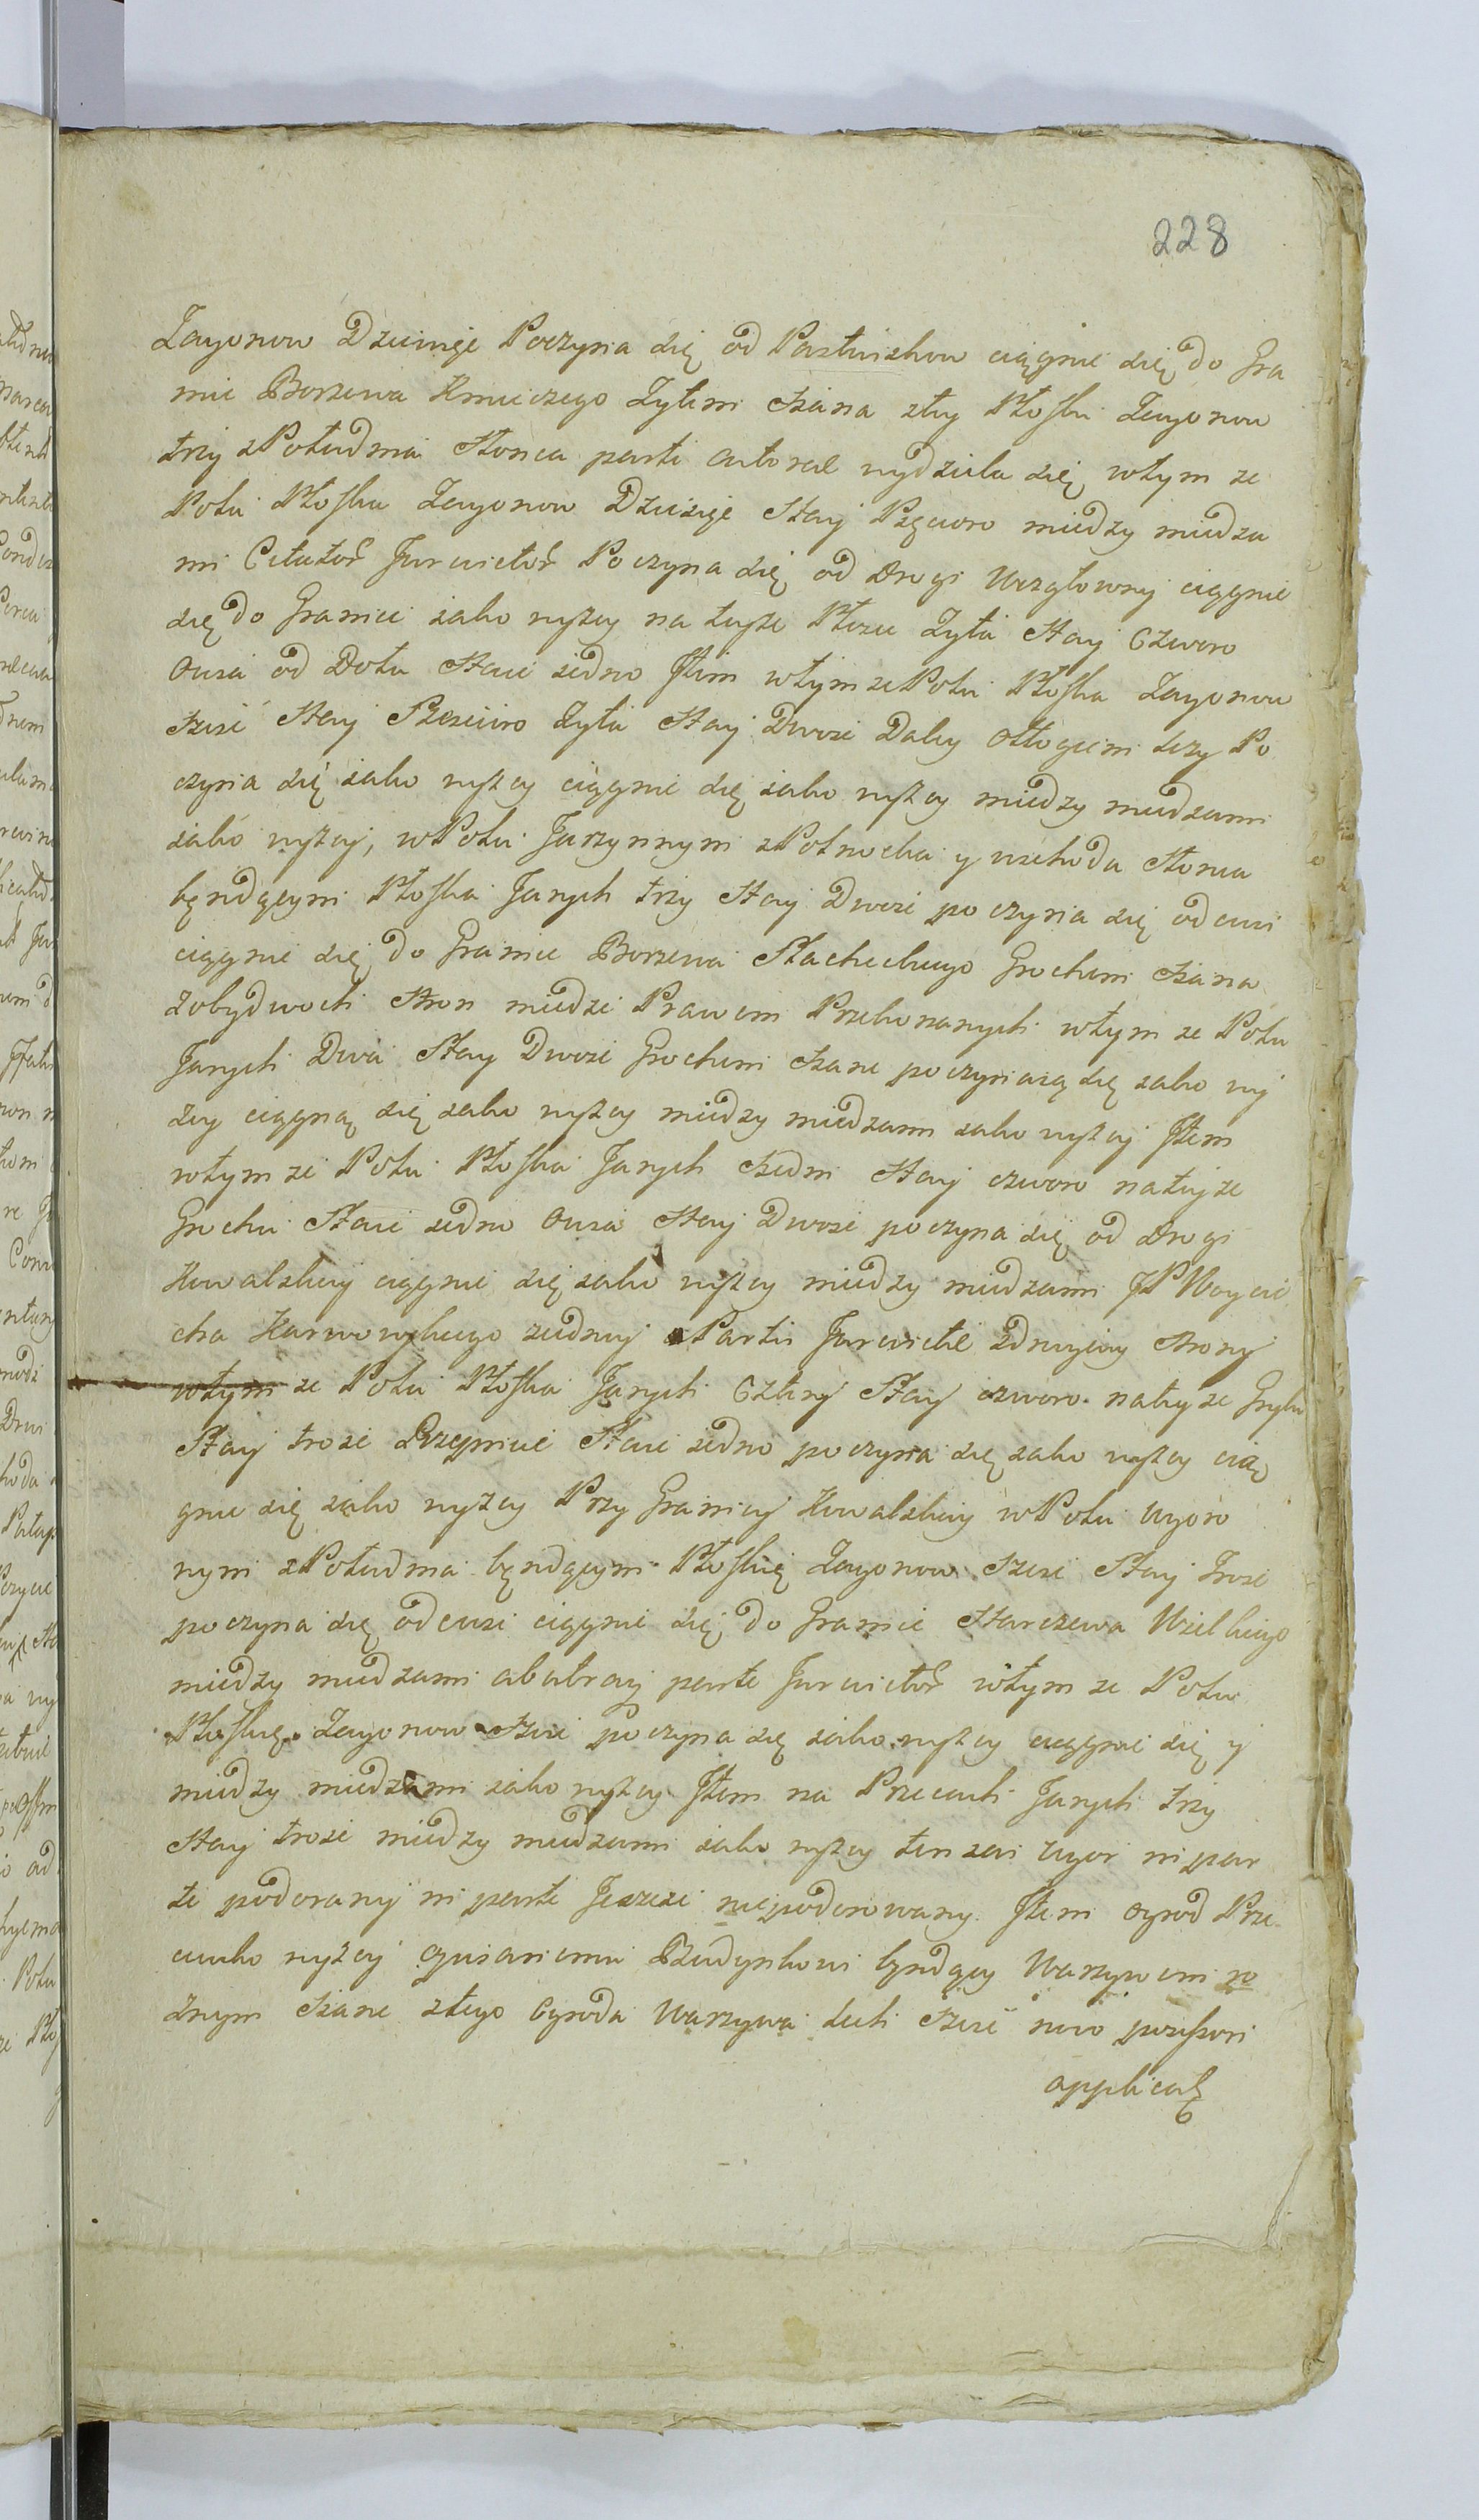 228
Zagonow Dziewięć Poczyna się od Pastwiskow ciągnie się do Gra
nic Borzewa Kmieczego Zytem siana z tey Płoski Zagonow
trzy z Południa Słonca parti actoreae wydziela się wtym ze
Polu Płoska Zagonow Dziesięć Stay Pięcioro miedzy miedza
mi Citator Jurwictor Poczyna się od Drogi Wezgłowny ciągnie
się do Granice iako wyżey na teyże Płosce Zyta Stay Czworo
Owsa od Dołu Staie iedno Item wtymze Polu Płoska Zagonow
szesc Stay Szescioro Zyta Stay Dwoie Daley Odłogiem lezy Po
czyna się iako wyżey ciągnie się iako wyżey miedzy miedzami
iako wyżey, w Polu Jarzynnym z Połnocka y wschoda Słonca
będącym Płoska Jarych trzy Stay Dwoie poczyna się od wsi
ciągnie się do Granice Borzewa Slacheckiego Grochem siana
z obydwoch Stron miedze Prawem Przekonanych wtym ze Polu
Jarych Dwa Stay Dwoie Grochem siane poczynaią się iako wy
zey ciągną się iako wyżey miedzy miedzami iako wyżey Item
wtym ze Polu Płoska Jarych siedm Stay czworo na tey ze
Grochu Staie iedno Owsa Stay Dwoie poczyna się od Drogi
Kowalskiey ciągnie się iako wyżey miedzy miedzami JP Woycie
cha Karwowskiego ziedney a Partis Jurwictae z drugiey strony
wtym ze Polu Płoska Jarych Cztery Stay czworo na tey ze Gryki
Stay troie Pszenice Staie iedno poczyna się iako wyżey cią
gnie się iako wyżey Przy Granicy Kowalskiey w Polu Ugoro
wym z Południa będącym Płoskę Zagonow szesc Stay Troie
poczyna się od wsi ciągnie się do Granic Starczewa Wielkiego
miedzy miedzami ab utraq parte Jurwictor wtym ze Polu
Płoskę Zagonow szesc poczyna się iako wyżey ciągnie się y
miedzy miedzami iako wyżey Item na Przecach Jarych trzy
Stay troie miedzy miedzami iako wyżey ten zas Ugor in par
te podorany in parte Jeszcze niepodorowany. Item ogrod Prze
ciwko wyżey opisanemu Budynkowi będący Warzywem ro
znym siane z tego Ogroda Warzywa Lech szesc novo possessori
applicatę